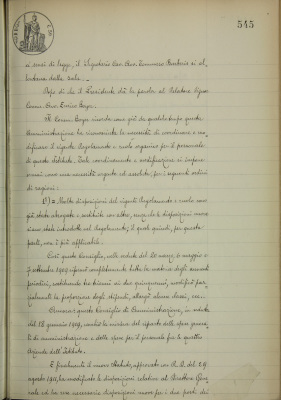 545
ai sensi di legge, il Segretario Cav. Avv. Tommaso si al-
lontana dalla sala. -
Dopo di che il Presidente dà la parola al Relatore Signor
Comm. Avv. Enrico
Il Comm. ricorda come già da qualche tempo questa
Amministrazione ha riconosciuto la necessità di coordinare e mo-
dificare il vigente Regolamento e ruolo organico per il personale
di questo Istituto. Tale coordinamento e modificazione si impon-
gono come una necessità urgente ed assoluta, per i seguenti ordini
di ragioni:
1°) = Molte disposizioni del vigente Regolamento e ruolo sono
già state abrogate e sostituite con altre, senza che le disposizioni nuove
siano state introdotte nel Regolamento; il quale quindi, per questa
parte, non è più applicabile.
Così questo Consiglio, nelle sedute del 20 marzo, 6 maggio e
7 settembre 1909
periodici, sostituendo ai quinquenni, modificò par-
zialmente la proporzione degli stipendi, allargò alcune classi, ecc.
Ancora: questo Consiglio di Amministrazione, in seduta
del 18 gennaio 1909, cambiò la misura del riparto delle spese genera-
li di amministrazione e delle spese per il personale fra le quattro
Aziende dell'Istituto.
E finalmente il nuovo Statuto, approvato con R. D. del 24
agosto 1911, ha modificato le disposizioni relative al Direttore Gene-
rale ed ha rese necessarie disposizioni nuove per i due posti di